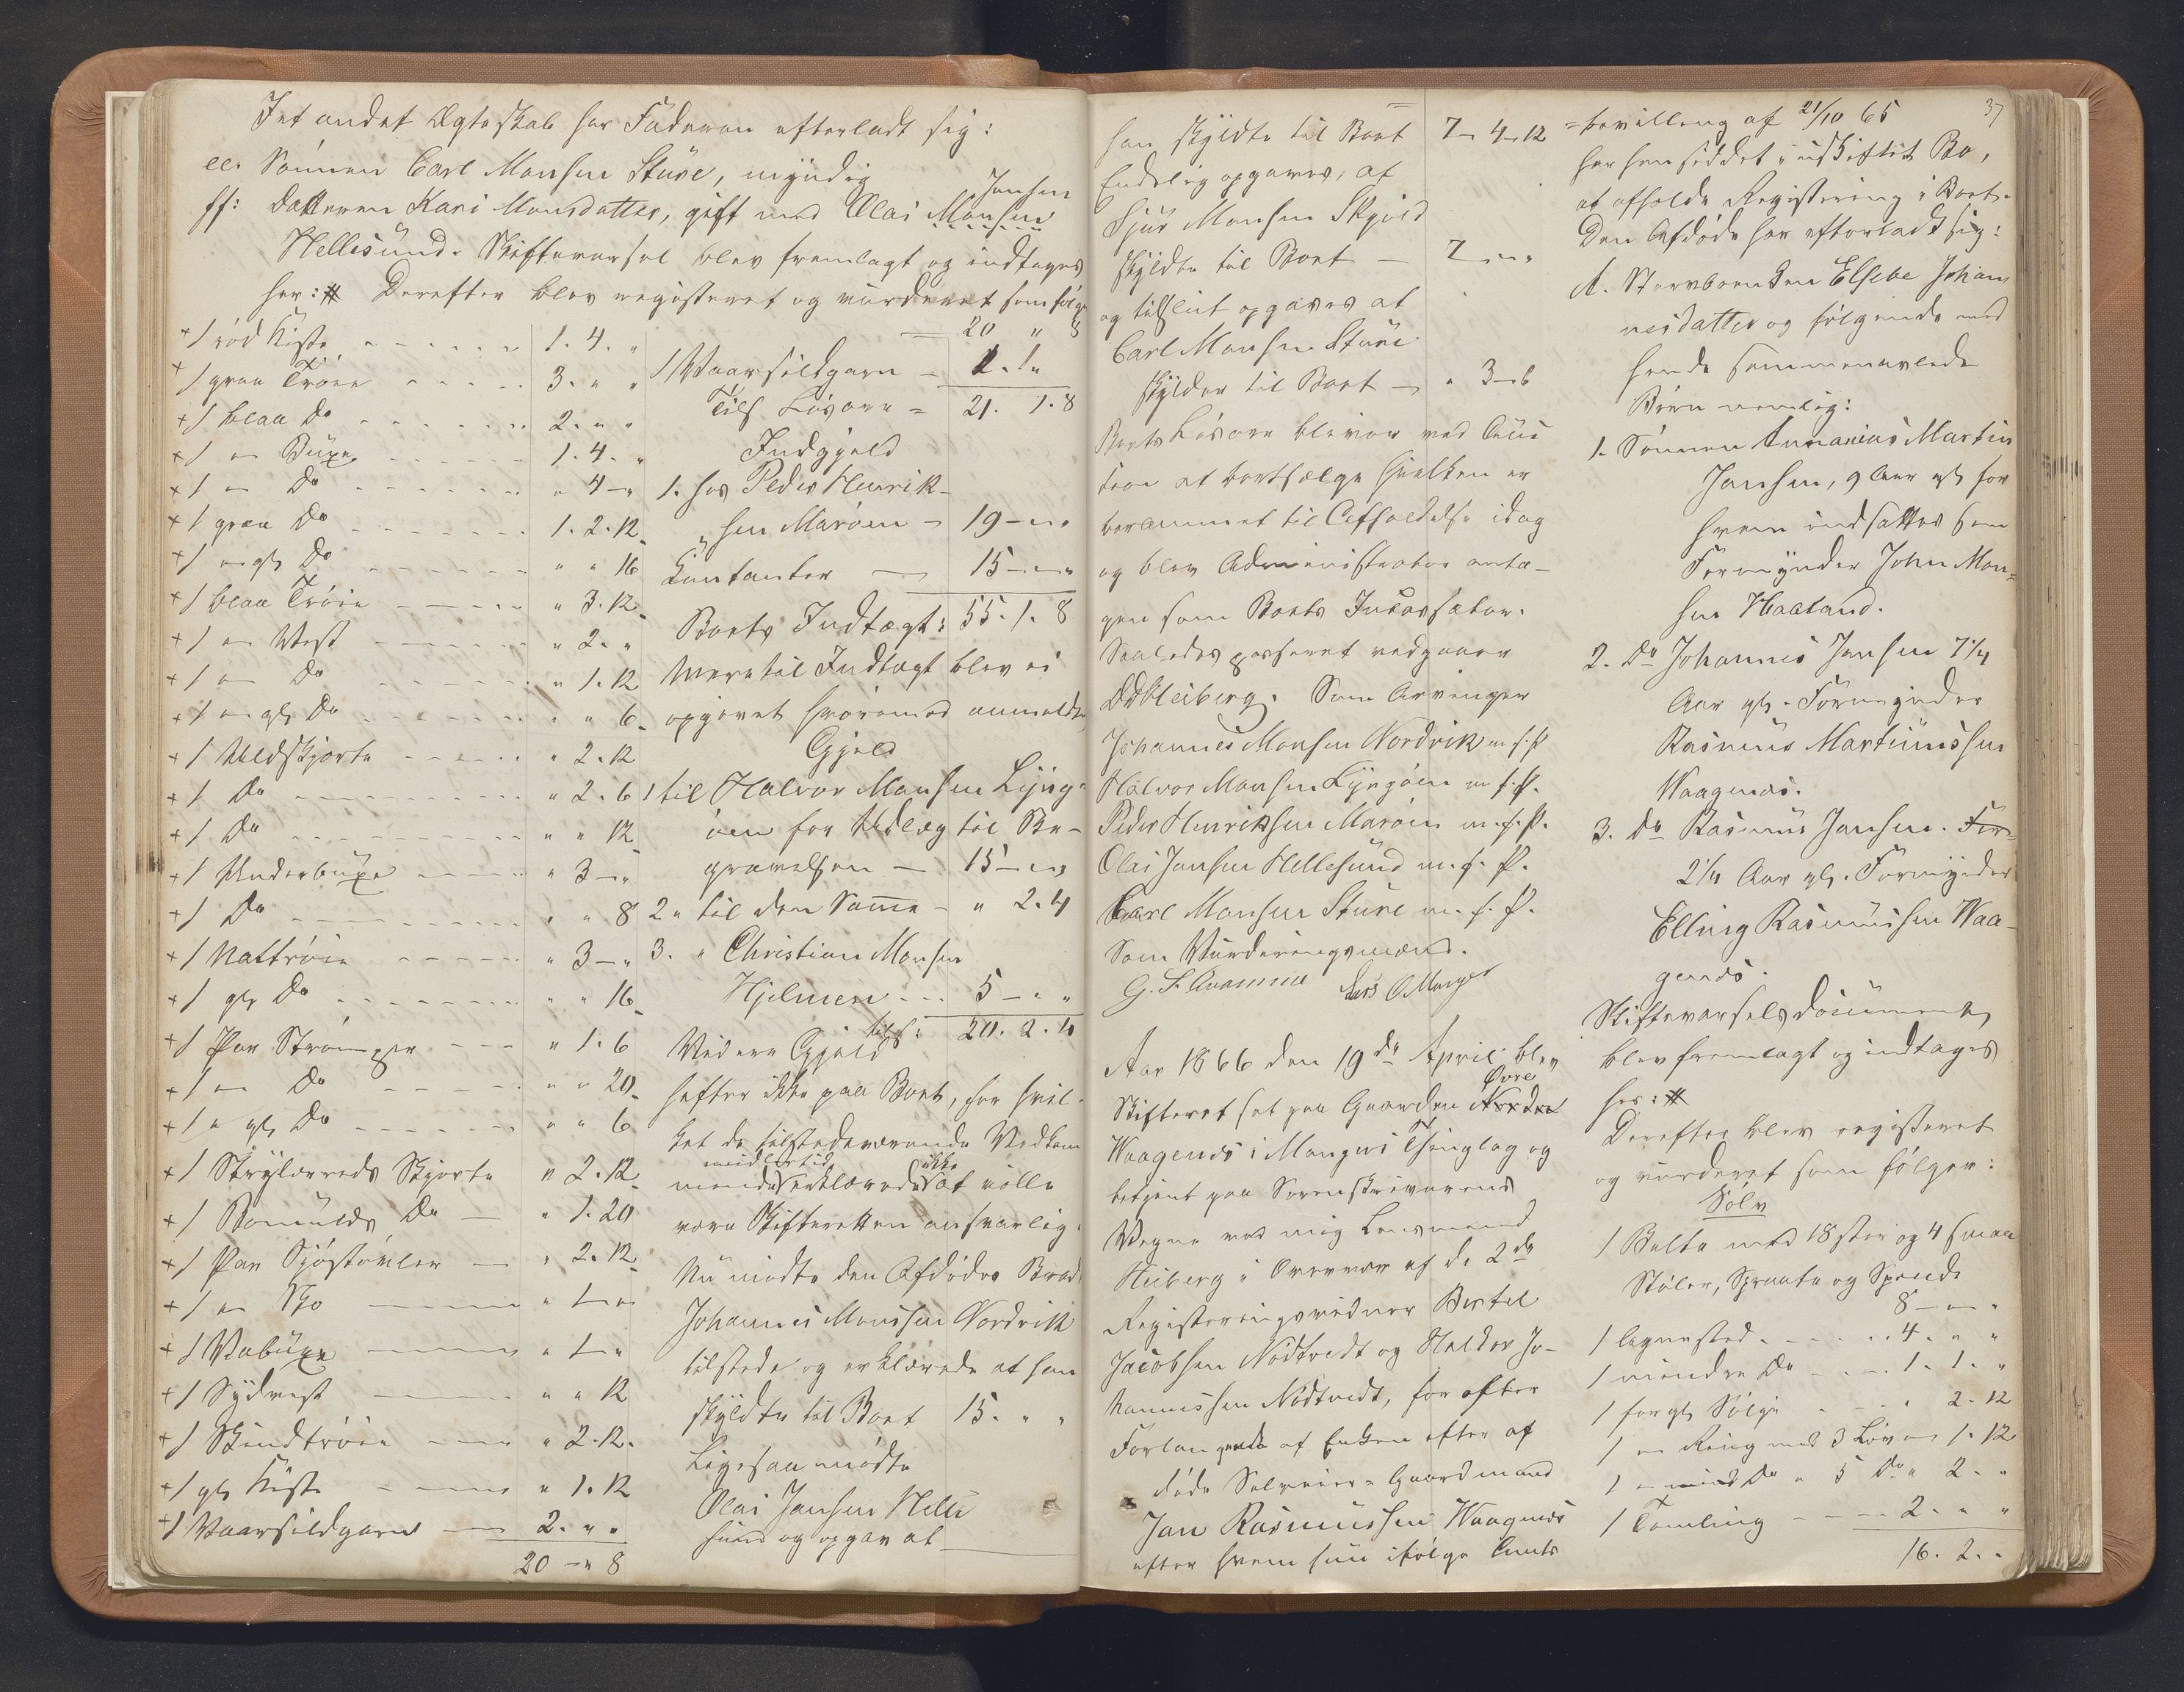 I et andet Ægteskab har Faderen efterladt sig:
ee. Sønnen Carl Monsen Sture, myndig
ff: Datteren Kari Monsdatter, gift med Olai Monsen Jansen
Hellesund. Skiftevarsel blev fremlagt og indtages
her: # Derefter blev registeret og vurderet som følger
+ 1 rød Kiste - - - 1. 4. "
+ 1 graa Trøie - - - 3. " "
+ 1 blaa Do - - - 2. " "
+ 1 " Buxe - - - 1. 4. "
+ 1 " Do - - - " 4 - "
+ 1 graa Do - - - 1. 2. 12
+ 1 " gl. Do - - - " " 16
+ 1 blaa Trøie - - - " 3. 12
+ 1 " Vest - - - " 2. "
+ 1 " Do - - - " 1. 12
+ 1 " gl. Do - - - " " 6
+ 1 Uldskjorte - - - " 2. 12
+ 1 Do - - - " 2. 6
+ 1 Do - - - " " 12
+ 1 Underbuxe - - - " 3 - "
+ 1 Do - - - " " 8
+ 1 Nattrøie - - - " 3 - "
+ 1 gl. Do - - - " " 16
+ 1 Par Strømper - - - " 1. 6
+ 1 " Do - - - " " 20
+ 1 " gl. Do - - - " " 6
+ 1 Strylærreds Skjorte " 2. 12
+ 1 Bomulds Do - " 1. 20
+ 1 Par Sjøstøvler - " 2. 12
+ 1 " Sko - " 1 - "
+ 1 Vabuxe - " 1 - "
+ 1 Sydvest - " " 12
+ 1 Skindtrøie - " 2. 12.
+ 1 gl. Kiste - " 1. 12
+ 1 Vaarsildgarn - 2. " "
20 - " 8
- 20 " 8
1 Vaarsildgarn - 1. 1 "
Tils. Løsøre = 21. 1. 8
Indgjeld
1. hos Peder Henrik-
"sen Marøen - 19 - " "
Contanter - 15 - " "
Boets Indtægt: 55. 1. 8
Mere til Indtægt blev ei
opgivet hvorimod anmeldtes
Gjeld
1 til Halvor Monsen Lyng-
øen for Udlæg til Be-
gravelsen - 15 - " "
2 " til den Samme - " 2. 4
3. " Christian Monsen
Hjelmen - - - 5 - " "
tils: 20. 2. 4
Videre Gjeld
hefter ikke paa Boet, for hvil-
ket de tilstedeværende Vedkom
mende imidlertid erklærede ikke at ville
være Skifteretten ansvarlig.
Nu mødte den Afdødes Broder
Johannes Monssen Nordvik
tilstede og erklærede at han
skyldte til Boet 15. " "
Ligesaa mødte
Olai Jansen Helle
sund og opgav at
han skyldte til Boet 7 - 4 - 12
Endelig opgaves, at
Sjur Monsen Skjold
skyldte til Boet - 7 - " "
og tilslut opgaves at
Carl Monsen Sture
skylder til Boet - " 3 - 6
Boets Løsøre bliver ved Auc
tion at bortsælge hvilken er
berammet til Afholdelse idag
og blev Administrator anta-
gen som Boets Incassator.
Saaledes passeret vedgaaer
DdHeiberg. Som Arvinger
Johannes Monsen Nordvik m. f. P.
Halvor Monsen Lyngøen m. f. P.
Peder Henriksen Marøen m. f. P.
Olai Jansen Hellesund m. f. P.
Carl Monsen Sture m. f. P.
Som Vurderingsmænd.
Aar 1866 den 19de April blev
Skifteret sat paa Gaarden Nordre Øvre
Waagenæs i Mangers Thinglag og
betjent paa Sorenskriverens
Vegne ved mig Lensmand
Heiberg i Overvær af de 2de
Registeringsvidner Bertel
Jacobsen Nødtvedt og Haldor Jo-
hannessen Nødtvedt, for efter
Forlangende af Enken efter af
døde Selveier-Gaardmand
Jan Rasmussen Waagenæs
efter hvem hun ifølge Amts
37
=bevilling af 21/10 65
har hensiddet i uskiftet Bo,
at afholde Registering i Boet.
Den Afdøde har efterladt sig:
A. Stervboenken Elsebe Johan
nesdatter og følgende med
hende sammenavlede
Børn nemlig:
1. Sønnen Annanias Martin
Jansen, 9 Aar gl. for
hvem indsattes som
Formynder John Mon=
sen Haaland.
2. Do Johannes Jansen 7 1/4
Aar gl. Formynder
Rasmus Martinussen
Waagenæs.
3. Do Rasmus Jansen. For=
2 1/4 Aar gl. Formynder
Elling Rasmussen Waa-
genæs.
Skiftevarselsdocument
blev fremlagt og indtages
her: #
Derefter blev registeret
og vurderet som følger:
Sølv
1 Belte med 18 store og 4 smaa
Støler, Spraate og Spænde
8 - " - "
1 lignested - - - 4. " "
1 mindre Do - - - 1. 1. "
1 forgl. Sølje - - " 2. 12
1 " Ring med 3 Løv " 1. 12
1 " mind Do " 5 Do " 2. "
1 Tomling - - - 2. " "
16. 2. "